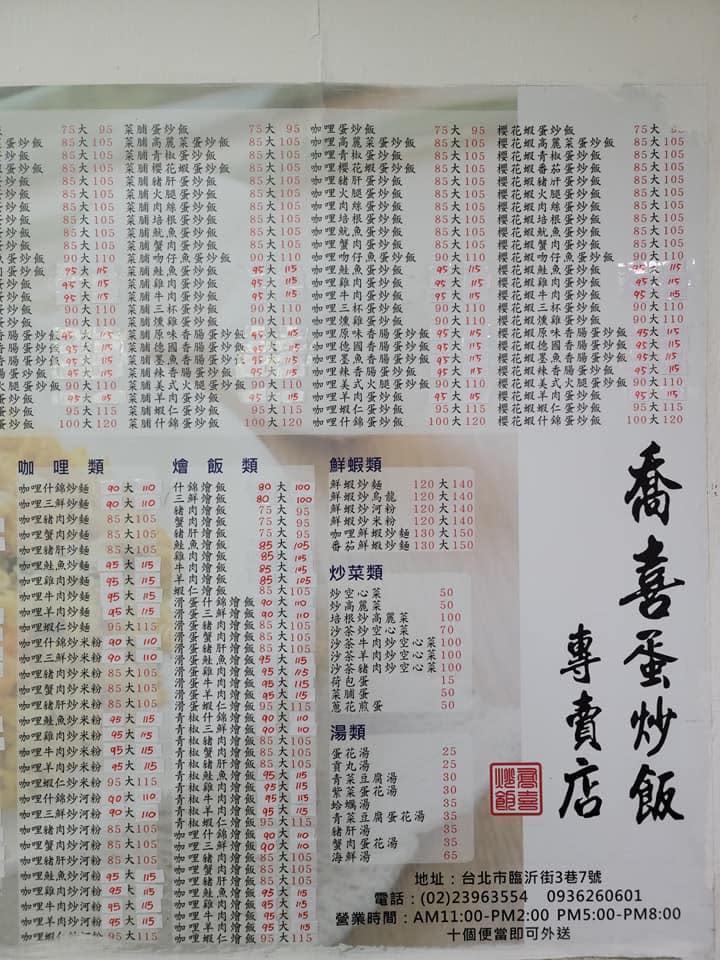 菜脯蛋炒飯 75大 95
菜脯高麗菜蛋炒飯 85大105
菜脯青椒蛋炒飯 85大105
菜脯櫻花蝦蛋炒飯 85大105
菜脯豬肝蛋炒飯 85大105
菜脯火腿蛋炒飯 85大105
菜脯肉絲蛋炒飯 85大105
菜脯培根蛋炒飯 85大105
菜脯魷魚蛋炒飯 85大105
菜脯蟹肉蛋炒飯 85大105
菜脯吻仔魚蛋炒飯 90大110
菜脯鮭魚蛋炒飯 95大115
菜脯雞肉蛋炒飯 95大115
菜脯牛肉蛋炒飯 95大115
菜脯三杯蛋炒飯 90大110
菜脯燻雞蛋炒飯 90大110
菜脯原味香腸蛋炒飯 95大115
菜脯德國香腸蛋炒飯 95大115
菜脯墨魚香腸蛋炒飯 95大115
菜脯辣香腸蛋炒飯 95大115
菜脯美式火腿蛋炒飯 90大110
菜脯羊肉蛋炒飯 95大115
菜脯蝦仁蛋炒飯 95大115
菜脯什錦蛋炒飯 100大120
咖哩蛋炒飯 75大 95
咖哩高麗菜蛋炒飯 85大105
咖哩青椒蛋炒飯 85大105
咖哩櫻花蝦蛋炒飯 85大105
咖哩豬肝蛋炒飯 85大105
咖哩火腿蛋炒飯 85大105
咖哩肉絲蛋炒飯 85大105
咖哩培根蛋炒飯 85大105
咖哩魷魚蛋炒飯 85大105
咖哩蟹肉蛋炒飯 85大105
咖哩吻仔魚蛋炒飯 90大110
咖哩鮭魚蛋炒飯 95大115
咖哩雞肉蛋炒飯 95大115
咖哩牛肉蛋炒飯 95大115
咖哩三杯蛋炒飯 90大110
咖哩燻雞蛋炒飯 90大110
咖哩原味香腸蛋炒飯 95大115
咖哩德國香腸蛋炒飯 95大115
咖哩墨魚香腸蛋炒飯 95大115
咖哩辣香腸蛋炒飯 95大115
咖哩美式火腿蛋炒飯 90大110
咖哩羊肉蛋炒飯 95大115
咖哩蝦仁蛋炒飯 95大115
咖哩什錦蛋炒飯 100大120
櫻花蝦蛋炒飯 75大
櫻花蝦高麗菜蛋炒飯 85大105
櫻花蝦青椒蛋炒飯 85大105
櫻花蝦番茄蛋炒飯 85大105
櫻花蝦豬肝蛋炒飯 85大105
櫻花蝦火腿蛋炒飯 85大105
櫻花蝦肉絲蛋炒飯 85大105
櫻花蝦培根蛋炒飯 85大105
櫻花蝦魷魚蛋炒飯 85大105
櫻花蝦蟹肉蛋炒飯 85大105
櫻花蝦吻仔魚蛋炒飯 90大110
櫻花蝦鮭魚蛋炒飯 95大115
櫻花蝦雞肉蛋炒飯 95大115
櫻花蝦牛肉蛋炒飯 95大115
櫻花蝦三杯蛋炒飯 90大110
櫻花蝦燻雞蛋炒飯 90大110
櫻花蝦原味香腸蛋炒飯 95大115
櫻花蝦德國香腸蛋炒飯 95大115
櫻花蝦墨魚香腸蛋炒飯 95大115
櫻花蝦辣香腸蛋炒飯 95大115
櫻花蝦美式火腿蛋炒飯 90大110
櫻花蝦羊肉蛋炒飯 95大115
櫻花蝦蝦仁蛋炒飯 95大115
櫻花蝦什錦蛋炒飯 100大120
咖哩類
咖哩什錦炒麵 90大110
咖哩三鮮炒麵 90大110
咖哩豬肉炒麵 85大105
咖哩蟹肉炒麵 85大105
咖哩豬肝炒麵 85大105
咖哩鮭魚炒麵 95大115
咖哩雞肉炒麵 95大115
咖哩牛肉炒麵 95大115
咖哩羊肉炒麵 95大115
咖哩蝦仁炒麵 95大115
咖哩什錦炒米粉 90大110
咖哩三鮮炒米粉 90大110
咖哩豬肉炒米粉 85大105
咖哩蟹肉炒米粉 85大105
咖哩豬肝炒米粉 85大105
咖哩鮭魚炒米粉 95大115
咖哩雞肉炒米粉 95大115
咖哩牛肉炒米粉 95大115
咖哩羊肉炒米粉 95大115
咖哩蝦仁炒米粉 95大115
咖哩什錦炒河粉 90大110
咖哩三鮮炒河粉 90大110
咖哩豬肉炒河粉 85大105
咖哩蟹肉炒河粉 85大105
咖哩豬肝炒河粉 85大105
咖哩鮭魚炒河粉 95大115
咖哩雞肉炒河粉 95大115
咖哩牛肉炒河粉 95大115
咖哩羊肉炒河粉 95大115
咖哩蝦仁炒河粉 95大115
燴飯類
什錦燴飯 80大100
三鮮燴飯 80大100
豬肉燴飯 75大 95
蟹肉燴飯 75大 95
豬肝燴飯 75大 95
鮭魚燴飯 85大105
雞肉燴飯 85大105
牛肉燴飯 85大105
羊肉燴飯 85大105
蝦仁燴飯 85大105
滑蛋什錦燴飯 90大110
滑蛋三鮮燴飯 90大110
滑蛋豬肉燴飯 85大105
滑蛋蟹肉燴飯 85大105
滑蛋豬肝燴飯 85大105
滑蛋鮭魚燴飯 95大115
滑蛋雞肉燴飯 95大115
滑蛋牛肉燴飯 95大115
滑蛋羊肉燴飯 95大115
滑蛋蝦仁燴飯 95大115
青椒什錦燴飯 90大110
青椒三鮮燴飯 90大110
青椒豬肉燴飯 85大105
青椒蟹肉燴飯 85大105
青椒豬肝燴飯 85大105
青椒鮭魚燴飯 95大115
青椒雞肉燴飯 95大115
青椒牛肉燴飯 95大115
青椒羊肉燴飯 95大115
青椒蝦仁燴飯 95大115
咖哩什錦燴飯 90大110
咖哩三鮮燴飯 90大110
咖哩豬肉燴飯 85大105
咖哩蟹肉燴飯 85大105
咖哩豬肝燴飯 85大105
咖哩鮭魚燴飯 95大115
咖哩雞肉燴飯 95大115
咖哩牛肉燴飯 95大115
咖哩羊肉燴飯 95大115
咖哩蝦仁燴飯 95大115
鮮蝦類
鮮蝦炒麵 120大140
鮮蝦炒烏龍 120大140
鮮蝦炒河粉 120大140
鮮蝦炒米粉 120大140
咖哩鮮蝦炒麵 130大150
番茄鮮蝦炒麵 130大150
炒菜類
炒空心菜 50
炒高麗菜 50
培根炒高麗菜 100
沙茶炒空心菜 70
沙茶牛肉炒空心菜 100
沙茶羊肉炒空心菜 100
沙茶豬肉炒空心菜 100
荷包蛋 15
菜脯蛋 50
蔥花煎蛋 50
湯類
蛋花湯 25
貢丸湯 25
青菜豆腐湯 30
紫菜蛋花湯 30
蛤蠣湯 35
青菜豆腐蛋花湯 35
豬肝湯 35
蟹肉蛋花湯 35
海鮮湯 65
喬喜蛋炒飯
專賣店
喬喜炒飯
地址：台北市臨沂街3巷7號
電話：(02)23963554 0936260601
營業時間：AM11:00-PM2:00 PM5:00-PM8:00
十個便當即可外送